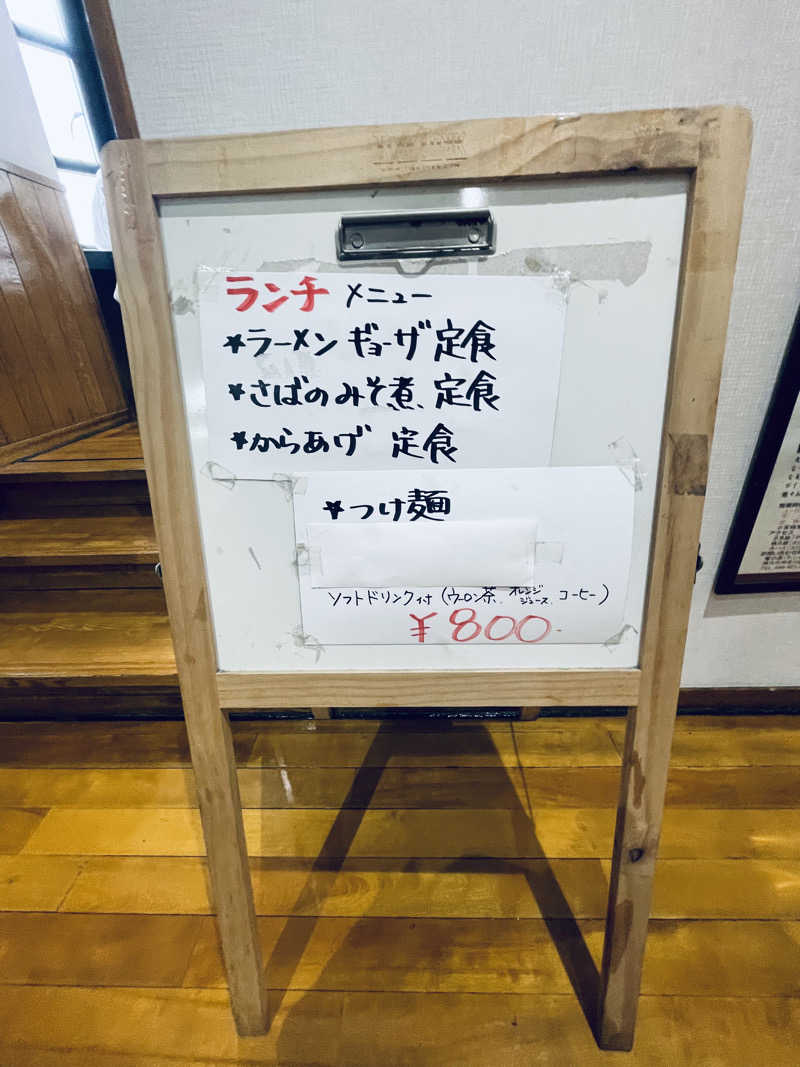 ランチ メニュー
★ラーメン ギョーザ 定食
★さばのみそ煮、定食
★からあげ 定食
★つけ麺
ソフトドリンク付 (ウーロン茶、オレンジジュース、コーヒー)
¥800-